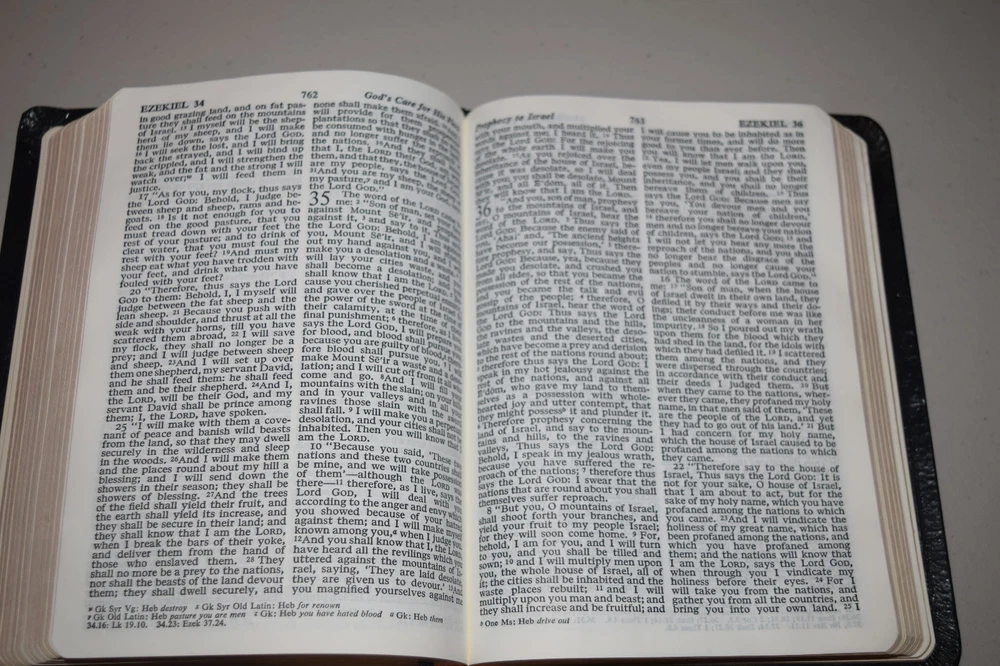 EZEKIEL 34
762
God's Care for His
in good grazing land, and on fat pas-
ture they shall feed on the mountains
of Israel. 15 I myself will be the shep-
herd of my sheep, and I will make
them lie down, says the Lord GOD.
16 I will seek the lost, and I will bring
back the strayed, and I will bind up
the crippled, and I will strengthen the
weak, and the fat and the strong I will
watch over; I will feed them in
justice.
17 "As for you, my flock, thus says
the Lord GOD: Behold, I judge be-
tween sheep and sheep, rams and he-
goats. 18 Is it not enough for you to
feed on the good pasture, that you
must tread down with your feet the
rest of your pasture; and to drink of
clear water, that you must foul the
rest with your feet? 19 And must my
sheep eat what you have trodden with
your feet, and drink what you have
fouled with your feet?
20 "Therefore, thus says the Lord
GOD to them: Behold, I, I myself will
judge between the fat sheep and the
lean sheep. 21 Because you push with
side and shoulder, and thrust at all the
weak with your horns, till you have
scattered them abroad, 22 I will save
my flock, they shall no longer be a
prey; and I will judge between sheep
and sheep. 23 And I will set up over
them one shepherd, my servant David,
and he shall feed them: he shall feed
them and be their shepherd. 24 And I,
the LORD, will be their God, and my
servant David shall be prince among
them; I, the LORD, have spoken.
25 "I will make with them a cove-
nant of peace and banish wild beasts
from the land, so that they may dwell
securely in the wilderness and sleep
in the woods. 26 And I will make them
and the places round about my hill a
blessing; and I will send down the
showers in their season; they shall be
showers of blessing. 27 And the trees
of the field shall yield their fruit, and
the earth shall yield its increase, and
they shall be secure in their land; and
they shall know that I am the LORD,
when I break the bars of their yoke,
and deliver them from the hand of
those who enslaved them. 28 They
shall no more be a prey to the nations,
nor shall the beasts of the land devour
them; they shall dwell securely, and
none shall make them afraid.
will provide for them
plantations so that they
be consumed with hunger
and no longer suffer the
the nations. 30 And they
that I, the LORD their God,
them, and that they, the house
are my people, says the Lord
31 And you are my sheep,
my pasture, and I am your
Lord GOD."
35 The word of the LORD came
me: 2 "Son of man, set
against Mount Se'ir, and
against it, 3 and say to it, Thus
the Lord GOD: Behold, I am
you, Mount Se'ir, and I will
out my hand against you, and
make you a desolation and a
will lay your cities waste, and
shall become a desolation; and
shall know that I am the LORD.
cause you cherished perpetual
and gave over the people of
the power of the sword at the
their calamity, at the time of
final punishment; 6 therefore, as
says the Lord GOD, I will prepare
for blood, and blood shall pursue
because you are guilty of blood,
fore blood shall pursue you.
make Mount Se'ir a waste and a
lation; and I will cut off from it all
come and go. 8 And I will fill
mountains with the slain; on your
and in your valleys and in all
ravines those slain with the
shall fall. 9 I will make you a perpetual
desolation, and your cities shall
inhabited. Then you will know that
am the LORD.
10 "Because you said, 'These two
nations and these two countries shall
be mine, and we will take possession
of them'—although the LORD
there—11 therefore, as I live, says
Lord GOD, I will deal with you
according to the anger and envy
you showed because of your hatred
against them; and I will make myself
known among you, when I judge you.
12 And you shall know that I, the LORD,
have heard all the revilings which you
uttered against the mountains of Is-
rael, saying, 'They are laid desolate,
they are given us to devour.' 13 And
you magnified yourselves against me
Gk Syr Vg: Heb destroy Gk Syr Old Latin: Heb for renown
Gk Old Latin: Heb pasture you are men Gk: Heb you have hated blood Gk: Heb them
34.16: Lk 19.10. 34.23: Ezek 37.24.
Prophecy to Israel
763
EZEKIEL 36
your mouth, and multiplied your
against me; I heard it. 14 Thus
Lord GOD: For the rejoicing
the whole earth I will make you
15 As you rejoiced over the
of the house of Israel, be-
it was desolate, so I will deal
you; you shall be desolate, Mount
and all E'dom, all of it. Then
will know that I am the LORD.
36 "And you, son of man, prophesy
to the mountains of Israel, and
mountains of Israel, hear the
of the LORD. 2 Thus says the
GOD: Because the enemy said of
'Aha!' and, 'The ancient heights
become our possession,' 3 there-
prophesy, and say, Thus says the
GOD: Because, yea, because they
you desolate, and crushed you
all sides, so that you became the
possession of the rest of the nations,
and you became the talk and evil
of the people; 4 therefore, O
mountains of Israel, hear the word of
Lord GOD: Thus says the Lord
GOD to the mountains and the hills,
the ravines and the valleys, the deso-
late wastes and the deserted cities,
which have become a prey and derision
to the rest of the nations round about;
therefore thus says the Lord GOD: I
speak in my hot jealousy against the
rest of the nations, and against all
E'dom, who gave my land to them-
selves as a possession with whole-
hearted joy and utter contempt, that
they might possess it and plunder it.
6 Therefore prophesy concerning the
land of Israel, and say to the moun-
tains and hills, to the ravines and
valleys, Thus says the Lord GOD:
Behold, I speak in my jealous wrath,
because you have suffered the re-
proach of the nations; 7 therefore thus
says the Lord GOD: I swear that the
nations that are round about you shall
themselves suffer reproach.
8 "But you, O mountains of Israel,
shall shoot forth your branches, and
yield your fruit to my people Israel;
for they will soon come home. 9 For,
behold, I am for you, and I will turn
to you, and you shall be tilled and
sown; 10 and I will multiply men upon
you, the whole house of Israel, all of
it; the cities shall be inhabited and the
waste places rebuilt; 11 and I will
multiply upon you man and beast; and
they shall increase and be fruitful; and
I will cause you to be inhabited as in
your former times, and will do more
good to you than ever before. Then
you will know that I am the LORD.
12 Yea, I will let men walk upon you,
even my people Israel; and they shall
possess you, and you shall be their
inheritance, and you shall no longer
bereave them of children. 13 Thus
says the Lord GOD: Because men say
to you, 'You devour men, and you
bereave your nation of children,'
14 therefore you shall no longer devour
men and no longer bereave your nation
of children, says the Lord GOD; 15 and
I will not let you hear any more the
reproach of the nations, and you shall
no longer bear the disgrace of the
peoples and no longer cause your
nation to stumble, says the Lord GOD."
16 The word of the LORD came to
me: 17 "Son of man, when the house
of Israel dwelt in their own land, they
defiled it by their ways and their do-
ings; their conduct before me was like
the uncleanness of a woman in her
impurity. 18 So I poured out my wrath
upon them for the blood which they
had shed in the land, for the idols with
which they had defiled it. 19 I scattered
them among the nations, and they
were dispersed through the countries;
in accordance with their conduct and
their deeds I judged them. 20 But
when they came to the nations, wher-
ever they came, they profaned my holy
name, in that men said of them, 'These
are the people of the LORD, and yet
they had to go out of his land.' 21 But
I had concern for my holy name,
which the house of Israel caused to be
profaned among the nations to which
they came.
22 "Therefore say to the house of
Israel, Thus says the Lord GOD: It is
not for your sake, O house of Israel,
that I am about to act, but for the
sake of my holy name, which you have
profaned among the nations to which
you came. 23 And I will vindicate the
holiness of my great name, which has
been profaned among the nations, and
which you have profaned among
them; and the nations will know that
I am the LORD, says the Lord GOD,
when through you I vindicate my
holiness before their eyes. 24 For I
will take you from the nations, and
gather you from all the countries, and
bring you into your own land. 25 I
b One Ms: Heb drive out